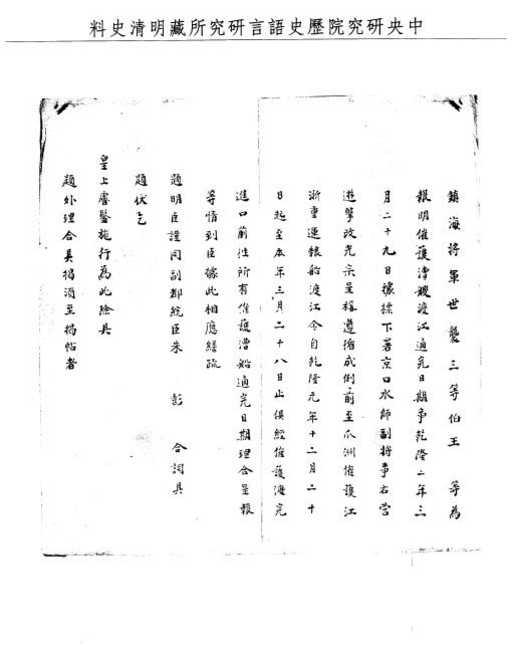 中央研究院歷史語言研究所藏明清史料
鎮海將軍世襲三等伯王 等為
報明催護漕艘渡江過完日期事乾隆二年三
月二十九日據標下署京口水師副將事右營
遊擊政光宗呈稱遵循成例前至瓜洲催護江
浙重運糧船渡江今自乾隆元年十二月二十
日起至本年三月二十八日止俱經催護渡完
進口前往所有催護漕船過完日期理合呈報
等情到臣據此相應繕疏
題明臣謹同副都統臣朱 彭 合詞具
題伏乞
皇上睿鑒施行為此除具
題外理合具揭須至揭帖者